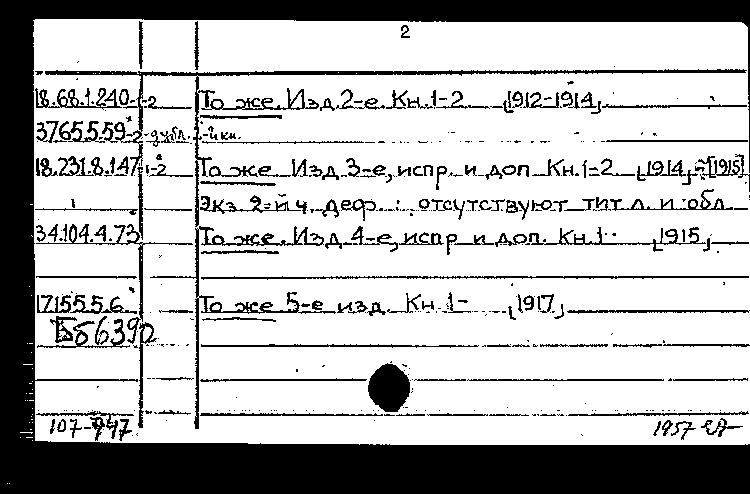 2
18.68.1.240-1-2 То же. Изд. 2-е. Кн. 1-2 [1912-1914]
37.65.5.59-2-дубл. 2-й кн.
18.231.8.147-1-2 То же. Изд. 3-е, испр. и доп. Кн. 1-2 [1914]-[1915]
Экз. 2-й ч. деф.: отсутствуют тит. л. и обл.
34.104.4.73 То же. Изд. 4-е, испр. и доп. Кн. 1- [1915]
17.155.5.6. То же 5-е изд. Кн. 1- [1917]
107-947 1957